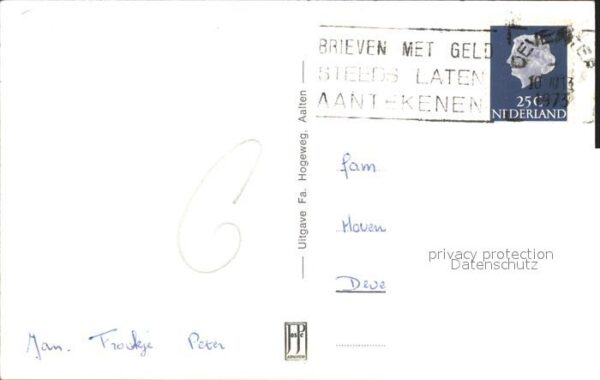 BRIEVEN MET GELD
STEEDS LATEN
AANTEKENEN
DEVENTER
1973
25c
NEDERLAND
Uitgave Fa. Hogeweg, Aalten
6
fam
Hoven
Deve
privacy protection
Datenschutz
Jan. Frookje Peter
JP